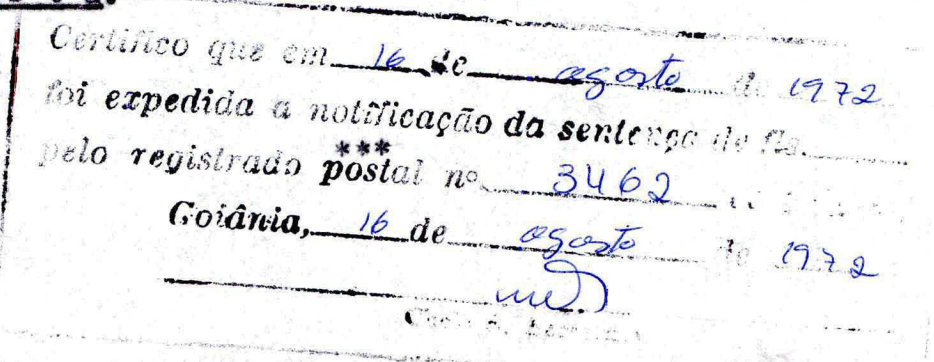 Certifico que em 16 de agosto de 1972
foi expedida a notificação da sentença de fls.
***
pelo registrado postal nº 3462
Goiânia, 16 de agosto de 1972